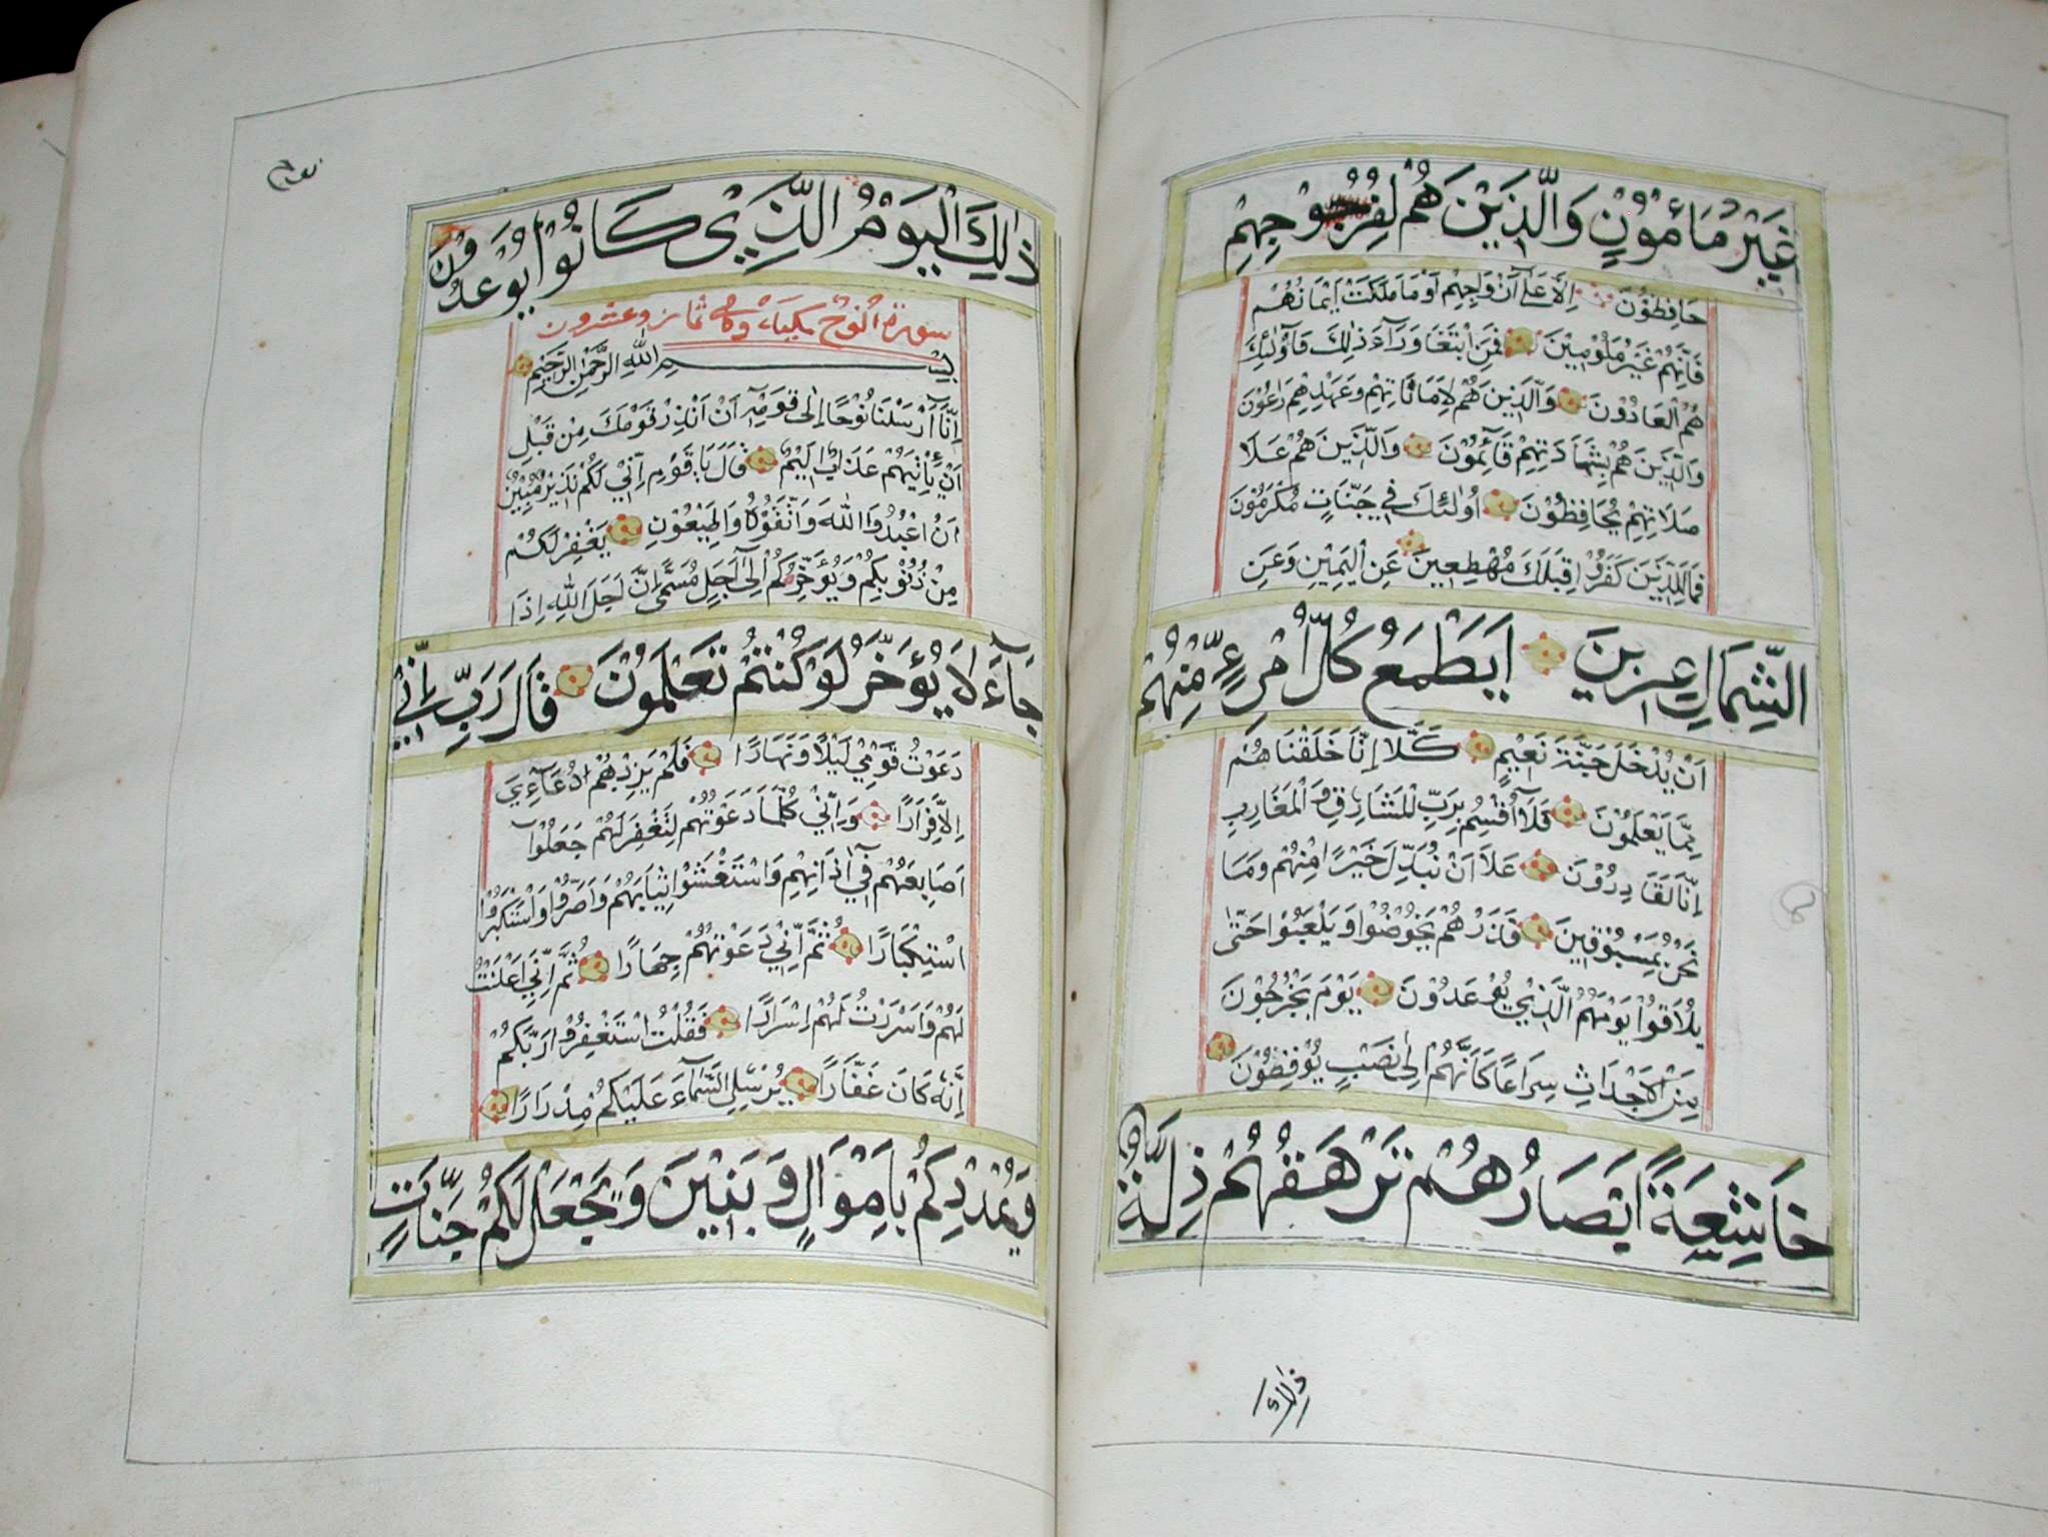 غَيْرُ مَأْمُوْنٍ وَالَّذِيْنَ هُمْ لِفُرُوْجِهِمْ
حَافِظُوْنَ اِلَّا عَلٰٓى اَزْوَاجِهِمْ اَوْ مَا مَلَكَتْ اَيْمَانُهُمْ
فَاِنَّهُمْ غَيْرُ مَلُوْمِيْنَ فَمَنِ ابْتَغَا وَرَآءَ ذٰلِكَ فَاُولٰئِكَ
هُمُ الْعَادُوْنَ وَالَّذِيْنَ هُمْ لِاَمَانَاتِهِمْ وَعَهْدِهِمْ رَاعُوْنَ
وَالَّذِيْنَ هُمْ بِشَهَادَتِهِمْ قَآئِمُوْنَ وَالَّذِيْنَ هُمْ عَلَا
صَلَاتِهِمْ يُحَافِظُوْنَ اُولٰئِكَ فِي جَنَّاتٍ مُكْرَمُوْنَ
فَمَالِلَّذِيْنَ كَفَرُوْا قِبَلَكَ مُهْطِعِيْنَ عَنِ الْيَمِيْنِ وَعَنِ
الشِّمَالِ عِزِيْنَ اَيَطْمَعُ كُلُّ امْرِءٍ مِّنْهُمْ
اَنْ يُدْخَلَ جَنَّةَ نَعِيْمٍ كَلَّا اِنَّا خَلَقْنَاهُمْ
مِمَّا يَعْلَمُوْنَ فَلَآ اُقْسِمُ بِرَبِّ الْمَشَارِقِ وَالْمَغَارِبِ
اِنَّا لَقَادِرُوْنَ عَلَا اَنْ نُبَدِّلَ خَيْرًا مِنْهُمْ وَمَا
نَحْنُ بِمَسْبُوْقِيْنَ فَذَرْهُمْ يَخُوْضُوْا وَيَلْعَبُوْا حَتّٰى
يُلَاقُوْا يَوْمَهُمُ الَّذِيْ يُوْعَدُوْنَ يَوْمَ يَخْرُجُوْنَ
مِنَ الْاَجْدَاثِ سِرَاعًا كَاَنَّهُمْ اِلٰى نَصْبٍ يُوْفِضُوْنَ
خَاشِعَةً اَبْصَارُهُمْ تَرْهَقُهُمْ ذِلَّةٌ
ذٰلِكَ الْيَوْمُ الَّذِيْ كَانُوْا يُوْعَدُوْنَ
سورة النوح مكية وهي ثمان وعشرون
بِسْمِ اللهِ الرَّحْمٰنِ الرَّحِيْمِ
اِنَّآ اَرْسَلْنَا نُوْحًا اِلٰى قَوْمِهٖٓ اَنْ اَنْذِرْ قَوْمَكَ مِنْ قَبْلِ
اَنْ يَأْتِيَهُمْ عَذَابٌ اَلِيْمٌ قَالَ يَا قَوْمِ اِنِّيْ لَكُمْ نَذِيْرٌ مُبِيْنٌ
اَنِ اعْبُدُوا اللهَ وَاتَّقُوْهُ وَاَطِيْعُوْنِ يَغْفِرْ لَكُمْ
مِنْ ذُنُوْبِكُمْ وَيُؤَخِّرْكُمْ اِلٰٓى اَجَلٍ مُسَمًّى اِنَّ اَجَلَ اللهِ اِذَا
جَآءَ لَا يُؤَخَّرُ لَوْ كُنْتُمْ تَعْلَمُوْنَ قَالَ رَبِّ اِنِّي
دَعَوْتُ قَوْمِيْ لَيْلًا وَنَهَارًا فَلَمْ يَزِدْهُمْ دُعَآءِيْ
اِلَّا فِرَارًا وَاِنِّيْ كُلَّمَا دَعَوْتُهُمْ لِتَغْفِرَ لَهُمْ جَعَلُوْٓا
اَصَابِعَهُمْ فِيْٓ اٰذَانِهِمْ وَاسْتَغْشَوْا ثِيَابَهُمْ وَاَصَرُّوْا وَاسْتَكْبَرُوْا
اسْتِكْبَارًا ثُمَّ اِنِّيْ دَعَوْتُهُمْ جِهَارًا ثُمَّ اِنِّيْ اَعْلَنْتُ
لَهُمْ وَاَسْرَرْتُ لَهُمْ اِسْرَارًا فَقُلْتُ اسْتَغْفِرُوْا رَبَّكُمْ
اِنَّهٗ كَانَ غَفَّارًا يُرْسِلِ السَّمَآءَ عَلَيْكُمْ مِدْرَارًا
وَيُمْدِدْكُمْ بِاَمْوَالٍ وَبَنِيْنَ وَيَجْعَلْ لَكُمْ جَنَّاتٍ